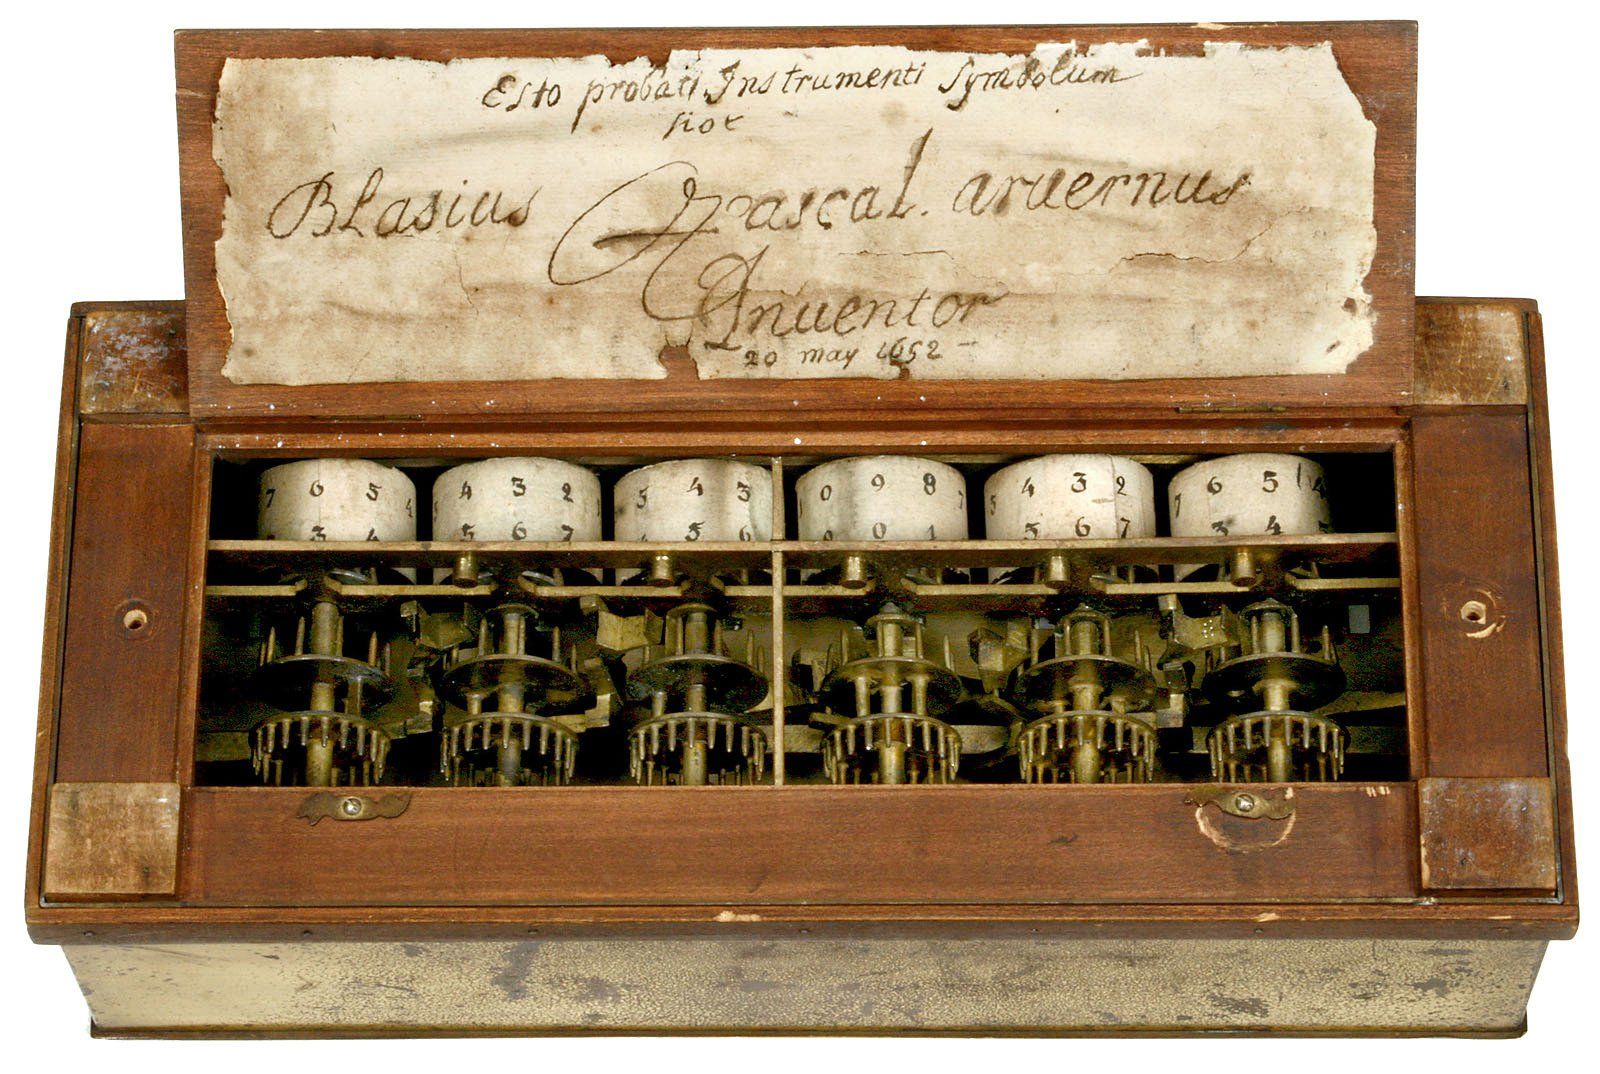 Esto probati Instrumenti Symbolum
hoc
Blasius Pascal. aruernus
Inuentor
20 may 1652 -
7 6 5 4
3 4
4 3 2
5 6 7
5 4 3
5 6
0 9 8 7
9 0 1
5 4 3 2
5 6 7
7 6 5 4
3 4